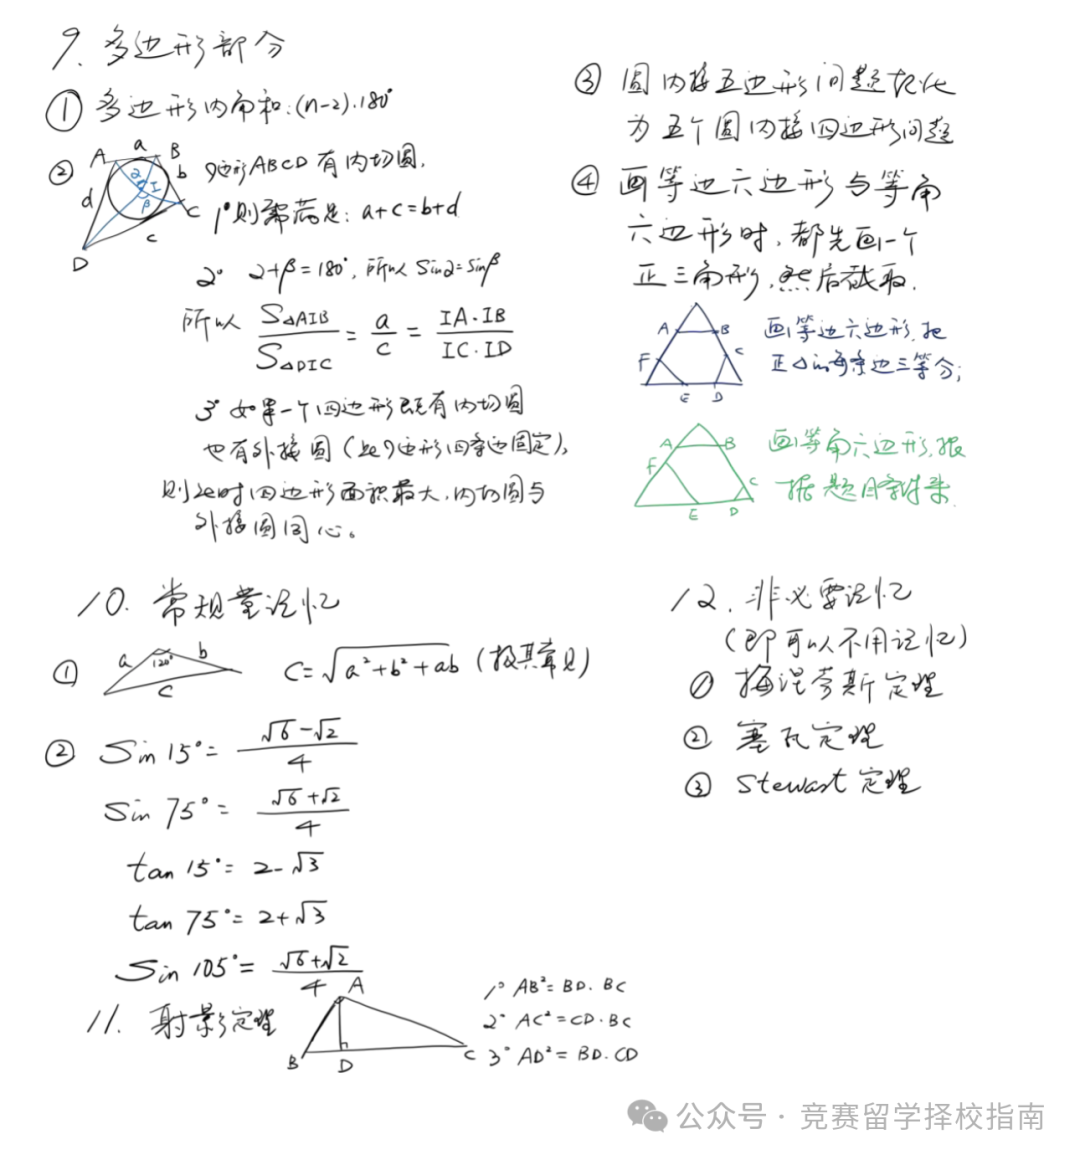 9. 多边形部分
① 多边形内角和:(n-2)·180°
② 四边形ABCD有内切圆,
A a B b C c D d I α β
1° 则需满足: a+c=b+d
2° α+β=180°, 所以 Sinα=Sinβ
所以 S△AIB / S△DIC = a/c = IA·IB / IC·ID
3° 如果一个四边形既有内切圆
也有外接圆(此四边形四条边固定),
则此时四边形面积最大,内切圆与
外接圆同心。
③ 圆内接五边形问题转化
为五个圆内接四边形问题
④ 画等边六边形与等角
六边形时,都先画一个
正三角形,然后截取.
A B C D E F
画等边六边形,把
正△的每条边三等分;
A B C D E F
画等角六边形,根
据题目条件来.
10. 常规量记忆
① a 120° b c
C=√(a²+b²+ab) (极其常见)
② Sin 15°= (√6-√2)/4
Sin 75°= (√6+√2)/4
tan 15°= 2-√3
tan 75°= 2+√3
Sin 105°= (√6+√2)/4
11. 射影定理
A B D C
1° AB²=BD·BC
2° AC²=CD·BC
3° AD²=BD·CD
12. 非必要记忆
(即可以不用记忆)
① 梅涅劳斯定理
② 塞瓦定理
③ Stewart定理
公众号·竞赛留学择校指南